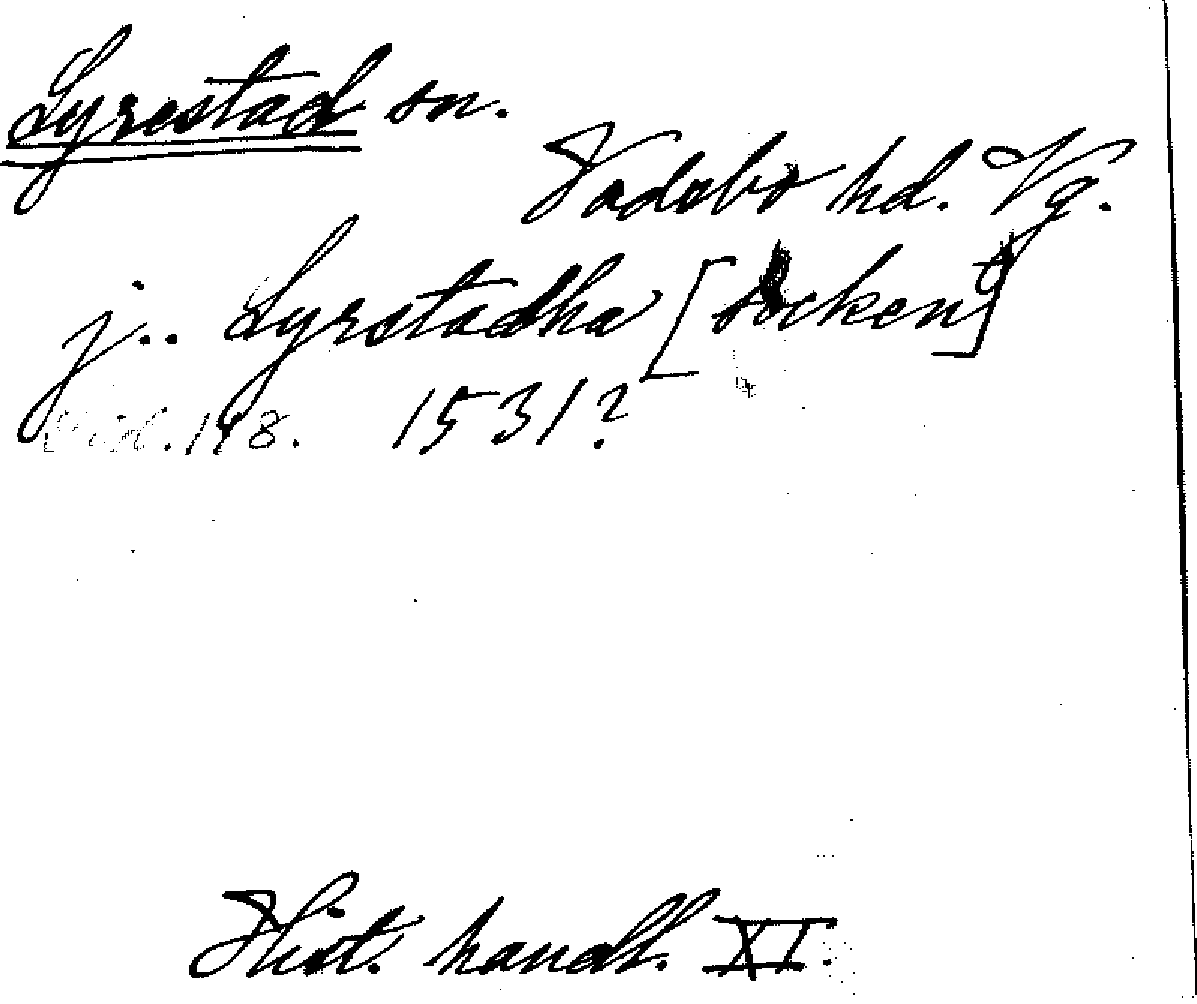 Lyrestad sn.
Vadsbo hd. Vg.
j.. Lyrstadha [socken]
148. 1531?
Hist. handl. XI.